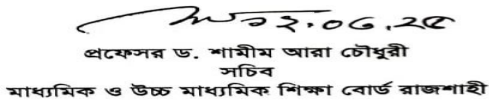 ২.০৬.২৫
প্রফেসর ড. শামীম আরা চৌধুরী
সচিব
মাধ্যমিক ও উচ্চ মাধ্যমিক শিক্ষা বোর্ড রাজশাহী